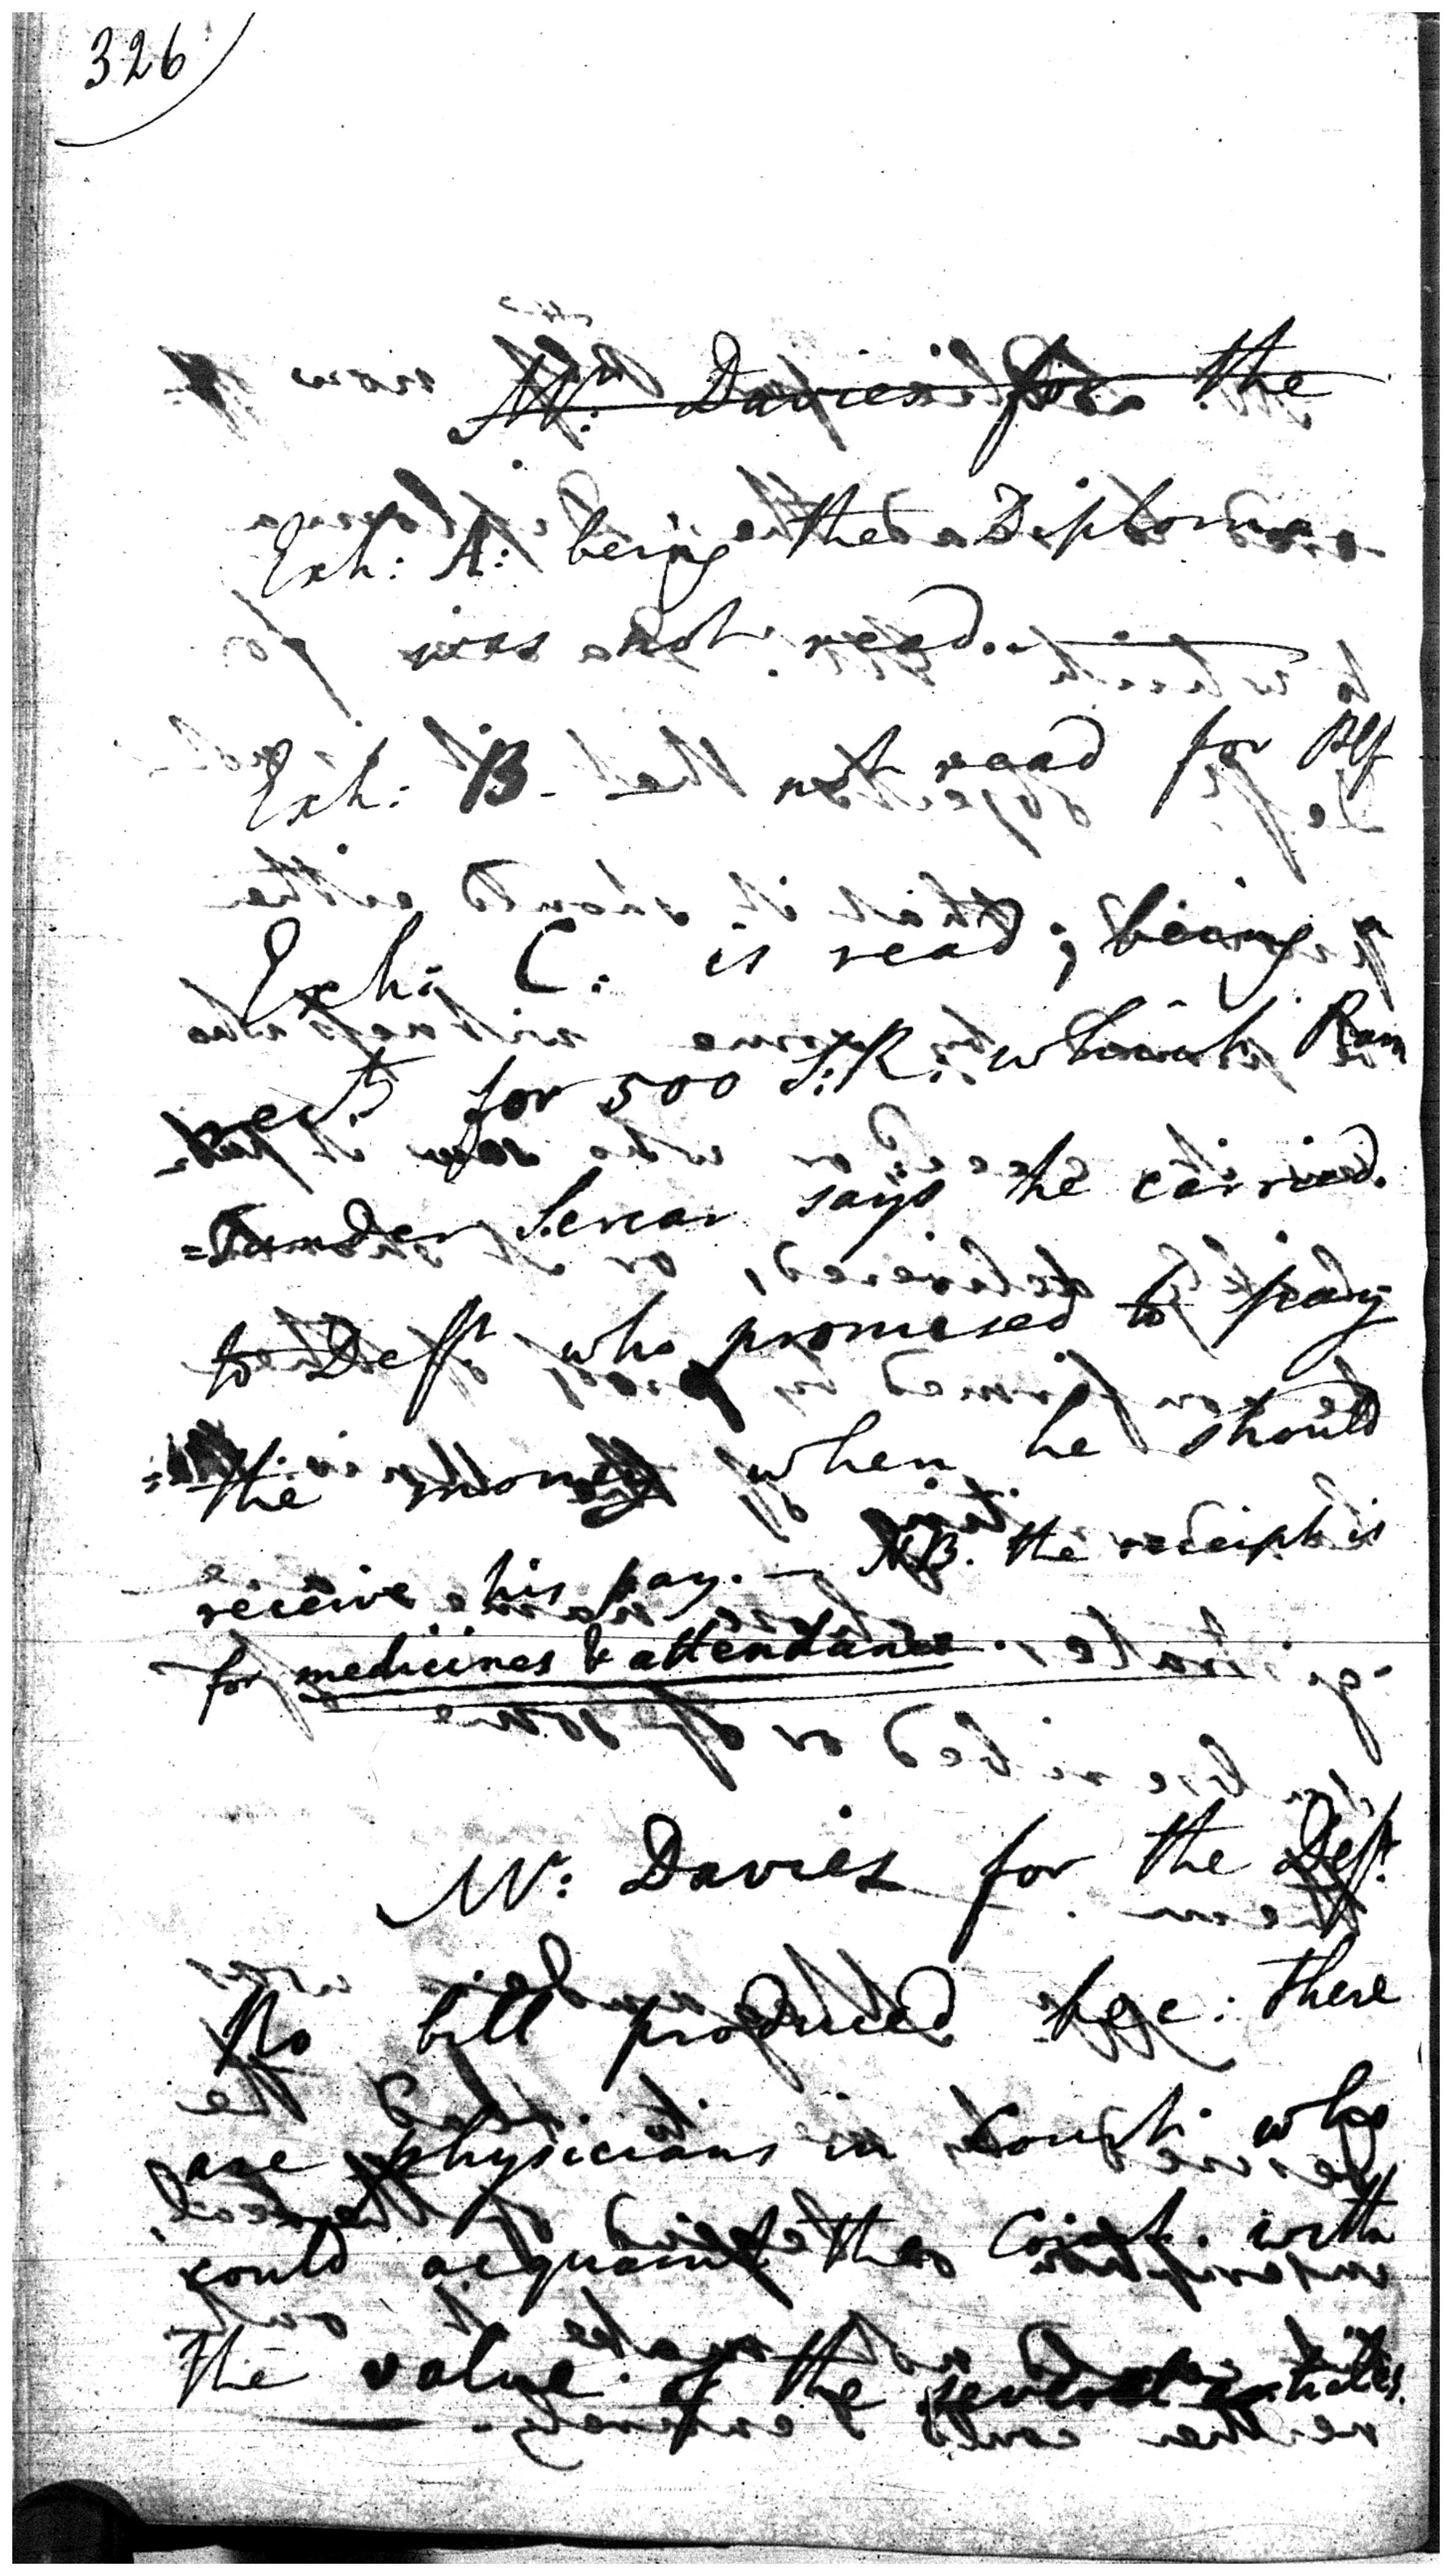 326
Mr: Davies for the
Exh: A: being the Diploma
was not read.
Exh: B - not read for Plf
Exh: C: is read; being
rect for 500 S:R: which Ram
=Sunder Sercar says he carried.
to Deft who promised to pay
the money when he should
receive his pay. — NB. the receipt is
for medicines & attendance.
Mr: Davies for the Deft.
No bill produced &c: there
are physicians in Court who
could acquaint the Court with
the value of the several articles.